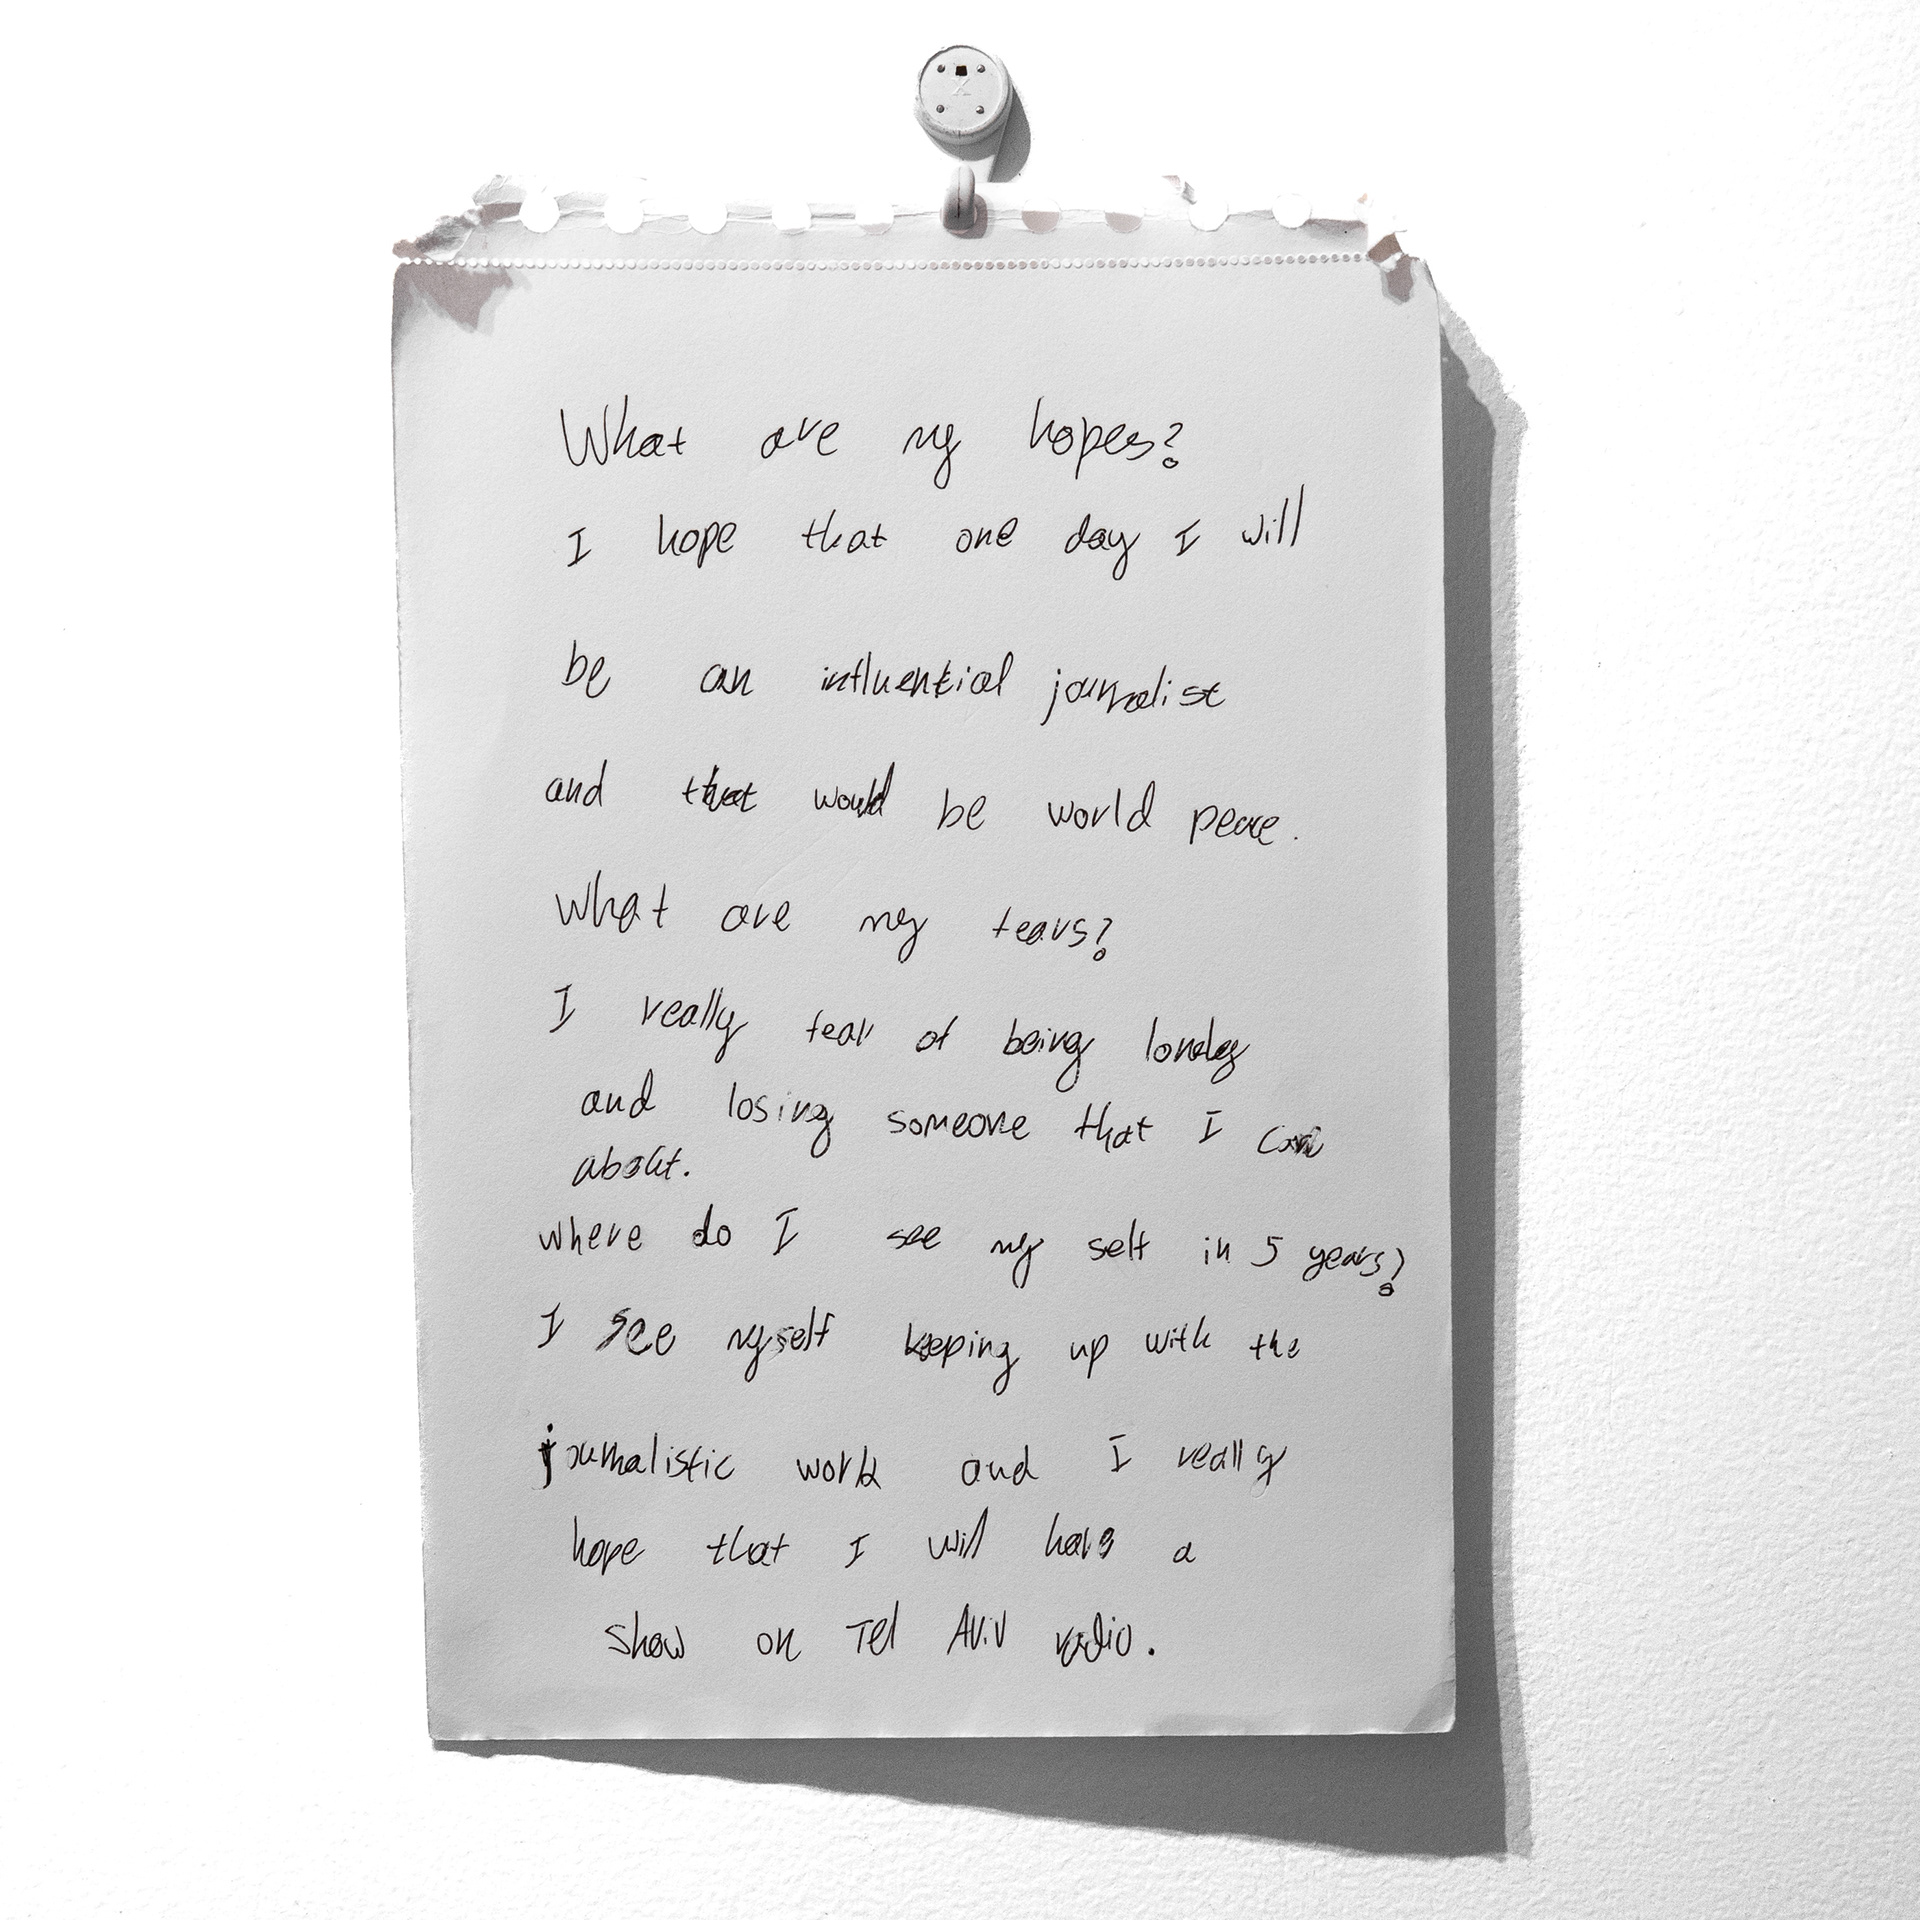 What are my hopes?
I hope that one day I will
be an influential journalist
and that would be world peace.
What are my fears?
I really fear of being lonely
and losing someone that I care
about.
where do I see my self in 5 years?
I see myself keeping up with the
journalistic work and I really
hope that I will have a
show on Tel Aviv radio.